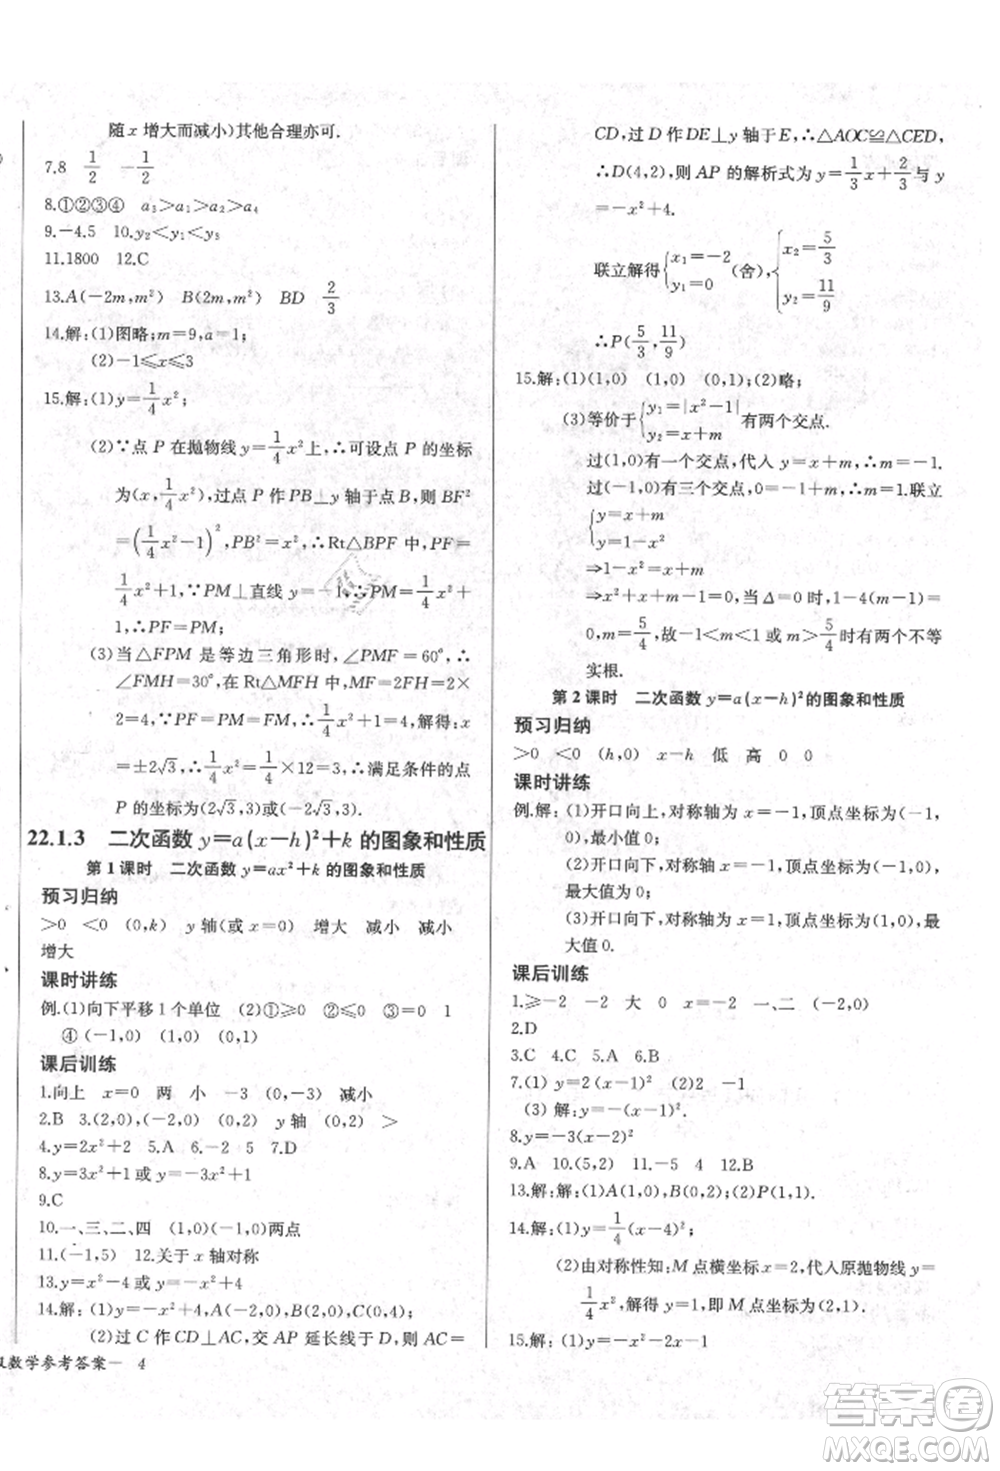 随 x 增大而减小)其他合理亦可.
7.8  1/2  -1/2
8.①②③④  a₃>a₁>a₂>a₄
9.-4.5  10.y₂<y₁<y₃
11.1800  12.C
13.A(-2m,m²)  B(2m,m²)  BD  2/3
14.解:(1)图略;m=9,a=1;
(2)-1≤x≤3
15.解:(1)y=1/4x²;
(2)∵点 P 在抛物线 y=1/4x²上,∴可设点 P 的坐标
为(x,1/4x²),过点 P 作 PB⊥y 轴于点 B,则 BF²
=(1/4x²-1)²,PB²=x²,∴Rt△BPF 中,PF=
1/4x²+1,∵PM⊥直线 y=-1,∴PM=1/4x²+
1,∴PF=PM;
(3)当△FPM 是等边三角形时,∠PMF=60°,∴
∠FMH=30°,在 Rt△MFH 中,MF=2FH=2×2
=4,∵PF=PM=FM,∴1/4x²+1=4,解得:x
=±2√3,∴1/4x²=1/4×12=3,∴满足条件的点
P 的坐标为(2√3,3)或(-2√3,3).
22.1.3  二次函数 y=a(x-h)²+k 的图象和性质
第 1 课时  二次函数 y=ax²+k 的图象和性质
预习归纳
>0  <0  (0,k)  y 轴(或 x=0)  增大  减小  减小
增大
课时讲练
例.(1)向下平移 1 个单位  (2)①≥0  ②≤0  ③0  1
④(-1,0)  (1,0)  (0,1)
课后训练
1.向上  x=0  两  小  -3  (0,-3)  减小
2.B  3.(2,0),(-2,0)  (0,2)  y 轴  >
4.y=2x²+2  5.A  6.-2  5  7.D
8.y=3x²+1 或 y=-3x²+1
9.C
10.一、三、二、四  (1,0)(-1,0)两点
11.(-1,5)  12.关于 x 轴对称
13.y=x²-4 或 y=-x²+4
14.解:(1)y=-x²+4,A(-2,0),B(2,0),C(0,4);
(2)过 C 作 CD⊥AC,交 AP 延长线于 D,则 AC=
数学参考答案— 4
CD,过 D 作 DE⊥y 轴于 E,∴△AOC≌△CED,
∴D(4,2),则 AP 的解析式为 y=1/3x+2/3与 y
=-x²+4.
联立解得{x₁=-2 y₁=0(舍),{x₂=5/3 y₂=11/9
∴P(5/3,11/9)
15.解:(1)(1,0)  (1,0)  (-1,0);(2)略;
(3)等价于{y₁=|x²-1| y₂=x+m有两个交点.
过(1,0)有一个交点,代入 y=x+m,∴m=-1.
过(-1,0)有三个交点,∴m=1.联立
{y=x+m y=-x²+1
⇒1-x²=x+m
⇒x²+x+m-1=0,当 Δ=0时,1-4(m-1)=
0,m=5/4,故-1<m<1 或 m>5/4时有两个不等
实根.
第 2 课时  二次函数 y=a(x-h)²的图象和性质
预习归纳
>0  <0  (h,0)  x=h  低  高  0  0
课时讲练
例.解:(1)开口向上,对称轴为 x=1,顶点坐标为(1,
0),最小值 0;
(2)开口向下,对称轴 x=-1,顶点坐标(-1,0),最
大值 0;
(3)开口向下,对称轴为 x=1,顶点坐标为(1,0),最
大值 0.
课后训练
1.≥-2  -2  大  0  x=-2  一、二  (-2,0)
2.D
3.C  4.C  5.A  6.B
7.(1)y=2(x-1)²  (2)2  -1
(3)解:y=-1/2(x-1)².
8.y=-3(x-2)²
9.A  10.(5,2)  11.-2  4  12.B
13.解:解:(1)A(1,0),B(0,1);(2)P(1,1).
14.解:(1)y=1/4(x-4)²;
(2)由对称性知:M 点横坐标 x=2,代入原抛物线 y=
1/4x²,解得 y=1,即 M 点坐标为(2,1).
15.解:(1)y=-x²-2x-1;
答案圈
MXQE.COM